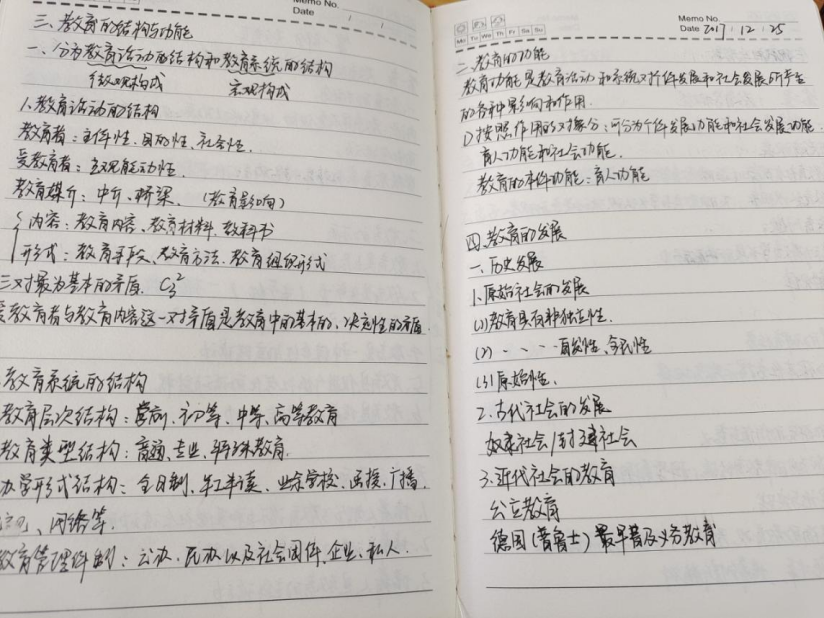 Memo No.
Date / /
三、教育的结构与功能
一、分为教育活动的结构和教育系统的结构
微观构成 宏观构成
1、教育活动的结构
教育者:主体性、目的性、社会性.
受教育者:主观能动性.
教育媒介:中介、桥梁. (教育影响)
内容:教育内容、教育材料、教科书
形式:教育手段、教育方法、教育组织形式
三对最为基本的矛盾. C₃²
受教育者与教育内容这一对矛盾是教育中的基本的、决定性的矛盾.
教育系统的结构
教育层次结构:学前、初等、中等、高等教育
教育类型结构:普通、专业、特殊教育.
办学形式结构:全日制、半工半读、业余学校、函授、广播、
网络等.
教育管理体制:公办、民办以及社会团体、企业、私人.
Mo Tu We Th Fr Sa Su
Memo No.
Date 2017 / 12 / 25
二、教育的功能
教育功能是教育活动和系统对个体发展和社会发展所产生
的各种影响和作用.
1)按照作用的对象分:可分为个体发展功能和社会发展功能.
育人功能和社会功能.
教育的本体功能:育人功能
四、教育的发展
一、历史发展
1、原始社会的发展
(1)教育具有种独立性.
(2)、、、、自发性、全民性
(3)原始性.
2、古代社会的发展
奴隶社会/封建社会
3、近代社会的教育
公立教育
德国(普鲁士)最早普及义务教育